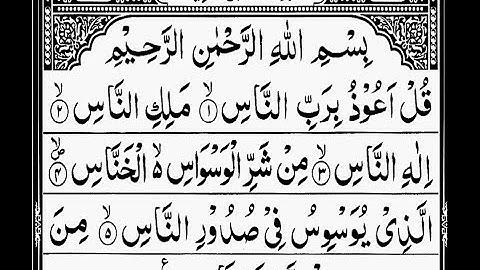 بِسْمِ اللهِ الرَّحْمٰنِ الرَّحِيْمِ
قُلْ اَعُوْذُ بِرَبِّ النَّاسِ ۙ﴿۱﴾ مَلِكِ النَّاسِ ۙ﴿۲﴾
اِلٰهِ النَّاسِ ۙ﴿۳﴾ مِنْ شَرِّ الْوَسْوَاسِ ۙ۬ الْخَنَّاسِ ۪ۙ﴿۴﴾
الَّذِىْ يُوَسْوِسُ فِىْ صُدُوْرِ النَّاسِ ۙ﴿۵﴾ مِنَ